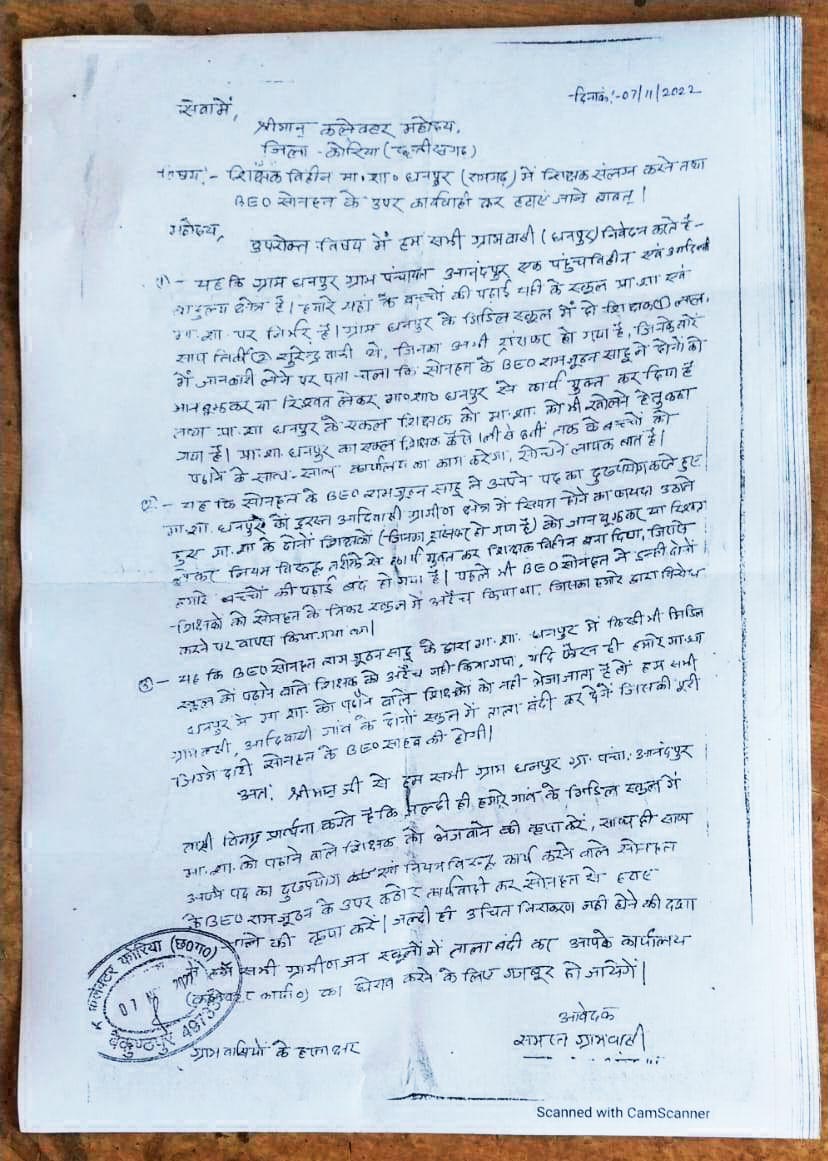 दिनांक:-07/11/2022
सेवा में,
श्रीमान् कलेक्टर महोदय,
जिला - कोरिया (छत्तीसगढ़)
विषय:- शिक्षक विहीन मा.शा. धनपुर (रामगढ़) में शिक्षक संलग्न करने तथा
BEO सोनहत के उपर कार्यवाही कर हटाएं जाने बाबत्।
महोदय,
उपरोक्त विषय में हम सभी ग्रामवासी (धनपुर) निवेदन करते हैं-
(1) - यह कि ग्राम धनपुर ग्राम पंचायत आनंदपुर एक पहुंचविहीन एवं आदिवासी
बाहुल्य क्षेत्र है। हमारे यहां के बच्चों की पढ़ाई यहीं के स्कूल प्रा.शा एवं
मा.शा. पर निर्भर है। ग्राम धनपुर के मिडिल स्कूल में दो शिक्षक (1) लाल.
साय (2) सुरेन्द्र थे, जिनका अभी ट्रांसफर हो गया है, जिनके बारे
में जानकारी लेने पर पता चला कि सोनहत के BEO रामजूठन साहू ने दोनों को
जानबूझकर या रिश्वत लेकर मा०शा० धनपुर से कार्य मुक्त कर दिया है
तथा प्रा.शा. धनपुर के एकल शिक्षक को मा.शा. को भी खोलने हेतु कहा
गया है। प्रा.शा. धनपुर का एकल शिक्षक कैसे 1ली से 8वीं तक के बच्चों को
पढ़ाने के साथ-साथ कार्यालय का काम करेगा, सोचने लायक बात है।
(2) - यह कि सोनहत के BEO रामजूठन साहू ने अपने पद का दुरूपयोग करते हुए
मा.शा. धनपुर को दूरस्त आदिवासी ग्रामीण क्षेत्र में स्थित होने का फायदा उठाते
हुए मा.शा. के दोनों शिक्षकों (जिनका ट्रांसफर हो गया है) को जान बूझकर या रिश्वत
लेकर नियम विरूद्ध तरीके से कार्य मुक्त कर शिक्षक विहीन बना दिया, जिससे
हमारे बच्चों की पढ़ाई बंद हो गया है। पहले भी BEO सोनहत ने इन्हीं दोनों
शिक्षकों को सोनहत के निकट स्कूल में अटैच किया था, जिसका हमारे द्वारा विरोध
करने पर वापस किया गया था।
(3) - यह कि BEO सोनहत रामजूठन साहू के द्वारा मा.शा. धनपुर में किसी भी मिडिल
स्कूल को पढ़ाने वाले शिक्षक को अटैच नहीं किया गया, यदि फौरन ही हमारे मा.शा
धनपुर में मा.शा. को पढ़ाने वाले शिक्षकों को नहीं भेजा जाता है तो हम सभी
ग्रामवासी, आदिवासी गांव के दोनों स्कूल में ताला बंदी कर देंगे जिसकी पूरी
जिम्मेदारी सोनहत के BEO साहब की होगी।
अतः श्रीमान् जी से हम सभी ग्राम धनपुर ग्रा. पंचा. आनंदपुर
वासी विनम्र प्रार्थना करते है कि जल्दी ही हमारे गांव के मिडिल स्कूल में
मा.शा. को पढ़ाने वाले शिक्षक को भेजवाने की कृपा करें, साथ ही साथ
अपने पद का दुरूपयोग एवं नियम विरूद्ध कार्य करने वाले सोनहत
के BEO रामजूठन के उपर कठोर कार्यवाही कर सोनहत से हटाए
जाने की कृपा करें। जल्दी ही उचित निराकरण नहीं होने की दशा
में हम सभी ग्रामीणजन स्कूलों में ताला बंदी कर आपके कार्यालय
(कलेक्टर कार्या०) का घेराव करने के लिए मजबूर हो जायेंगे।
कलेक्टर कोरिया (छ०ग०)
07
बैकुण्ठपुर
आवेदक
समस्त ग्रामवासी
ग्रामवासियों के हस्ताक्षर
Scanned with CamScanner